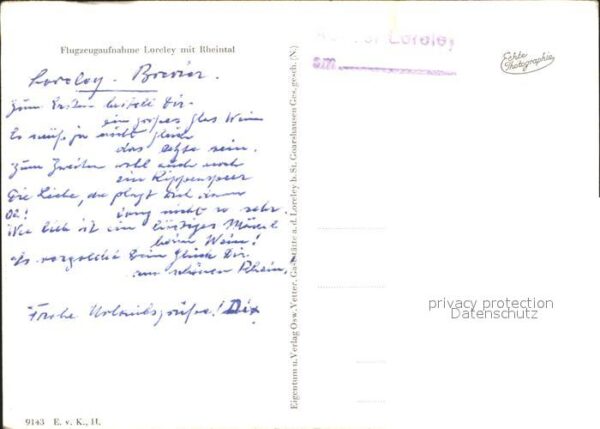 Flugzeugaufnahme Loreley mit Rheintal
Loreley
am
Echte
Photographie
Loreley. Brevier.
Zum Ersten bestell Dir
ein großes Glas Wein
Es muß ja nicht gleich
das letzte sein.
Zum Zweiten wohl auch noch
ein Rippenspeer
Die Liebe, die plagt Dich dann
nicht so sehr.
Wie lieb ist ein Mädel
beim Wein!
Dein Glück Dir
am schönen Rhein.
Frohe Urlaubsgrüße!
Eigentum u. Verlag Osw. Vetter, Gaststätte a. d. Loreley b. St. Goarshausen Ges. gesch. (N)
privacy protection
Datenschutz
9143 E. v. K., H.